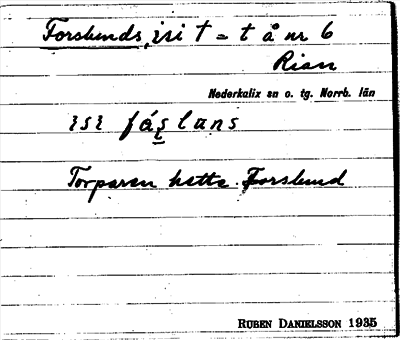 Forslunds, isi † = t å nr 6
Rian
Nederkalix sn o. tg. Norrb. län
isi fáşlans
Torparen hette Forslund
RUBEN DANIELSSON 1935